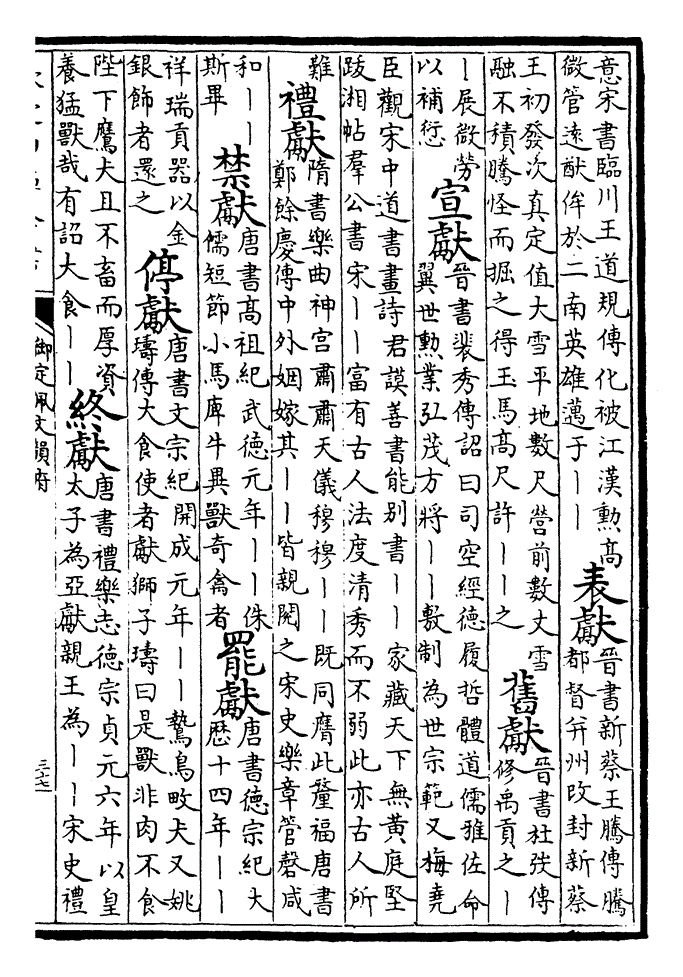 意宋書臨川王道規傳化被江漢勲髙
微管逺猷侔於二南英雄邁于丨丨
表獻
晉書新蔡王騰傳騰
都督并州改封新蔡
王初發次真定值大雪平地數尺營前數丈雪
融不積騰怪而掘之得玉馬髙尺許丨丨之
舊獻
晉書杜弢傳
修禹貢之丨
丨展微勞
以補愆
宣獻
晉書裴秀傳詔曰司空經德履哲體道儒雅佐命
翼世勲業弘茂方將丨丨敷制為世宗範又梅堯
臣觀宋中道書畫詩君謨善書能别書丨丨家藏天下無黄庭堅
跋湘帖羣公書宋丨丨富有古人法度清秀而不弱此亦古人所
難
禮獻
隋書樂曲神宫肅肅天儀穆穆丨丨既同膺此釐福唐書
鄭餘慶傳中外姻嫁其丨丨皆親閱之宋史樂章管磬咸
和丨丨
斯畢
禁獻
唐書髙祖紀武德元年丨丨侏
儒短節小馬庳牛異獸奇禽者
罷獻
唐書德宗紀大
歴十四年丨丨
祥瑞貢器以金
銀飾者還之
停獻
唐書文宗紀開成元年丨丨鷙鳥畋犬又姚
璹傳大食使者獻獅子璹曰是獸非肉不食
陛下鷹犬且不畜而厚資
養猛獸哉有詔大食丨丨
終獻
唐書禮樂志德宗貞元六年以皇
太子為亞獻親王為丨丨宋史禮
御定佩文韻府
三七